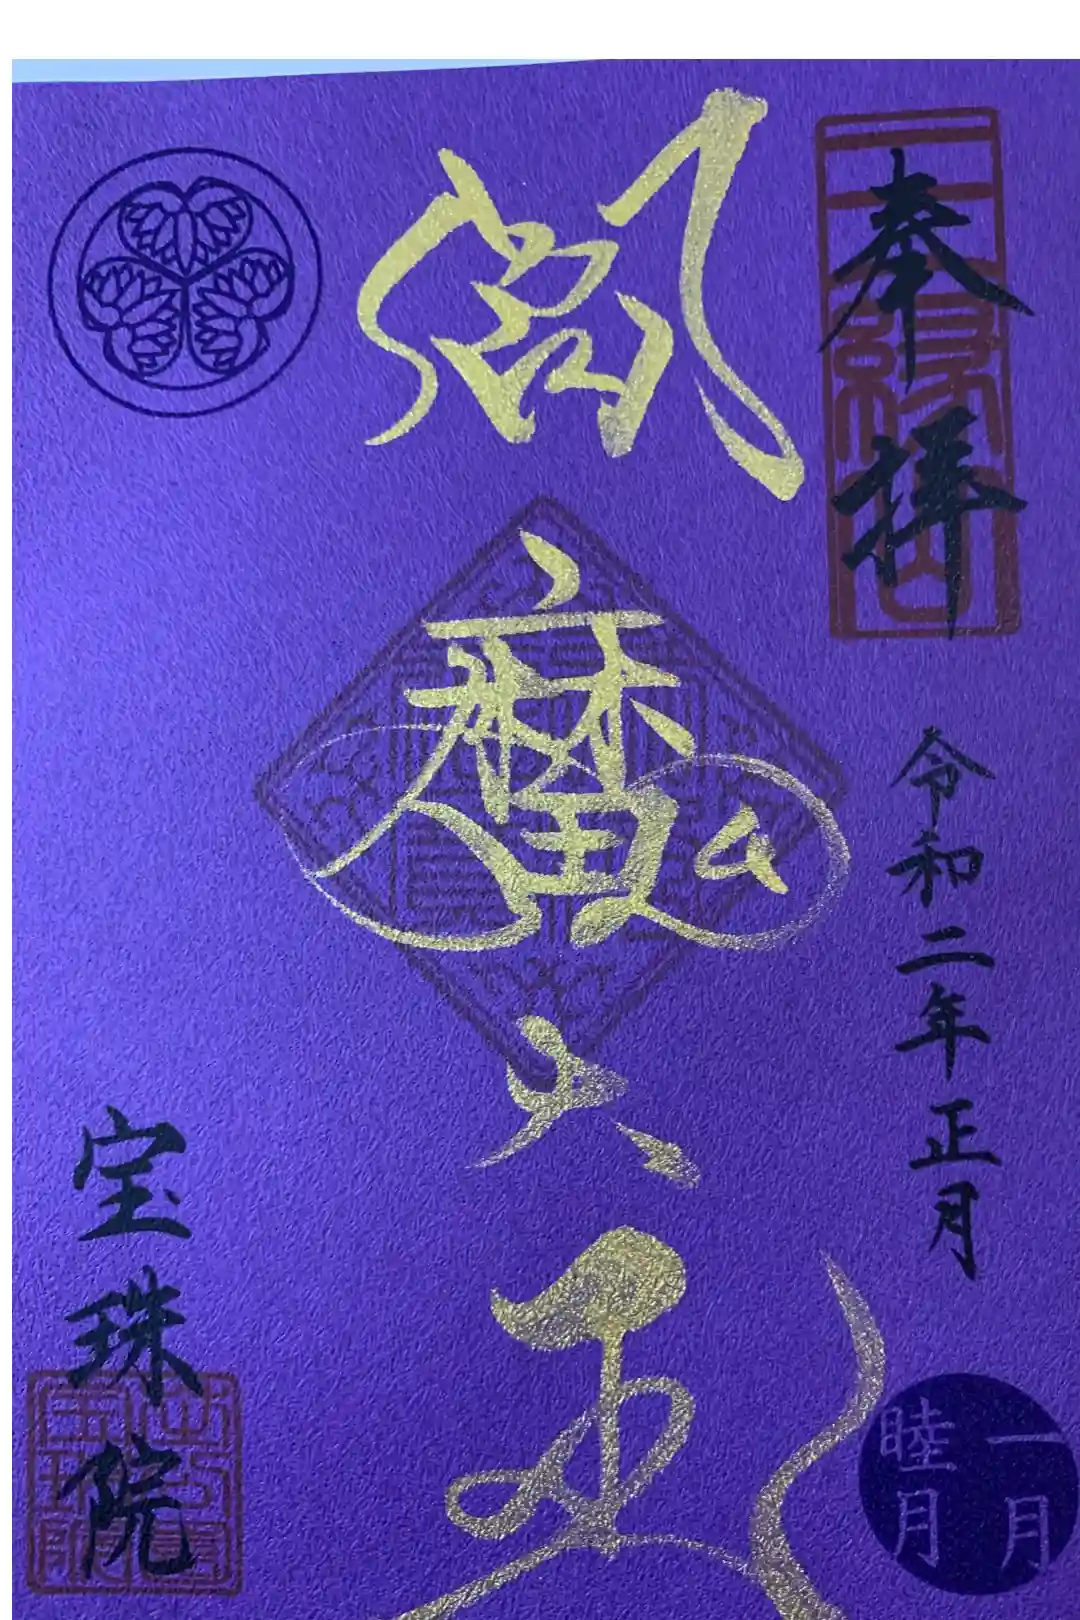 奉拝
三縁山
令和二年正月
閻魔大王
宝珠院
一月
睦月